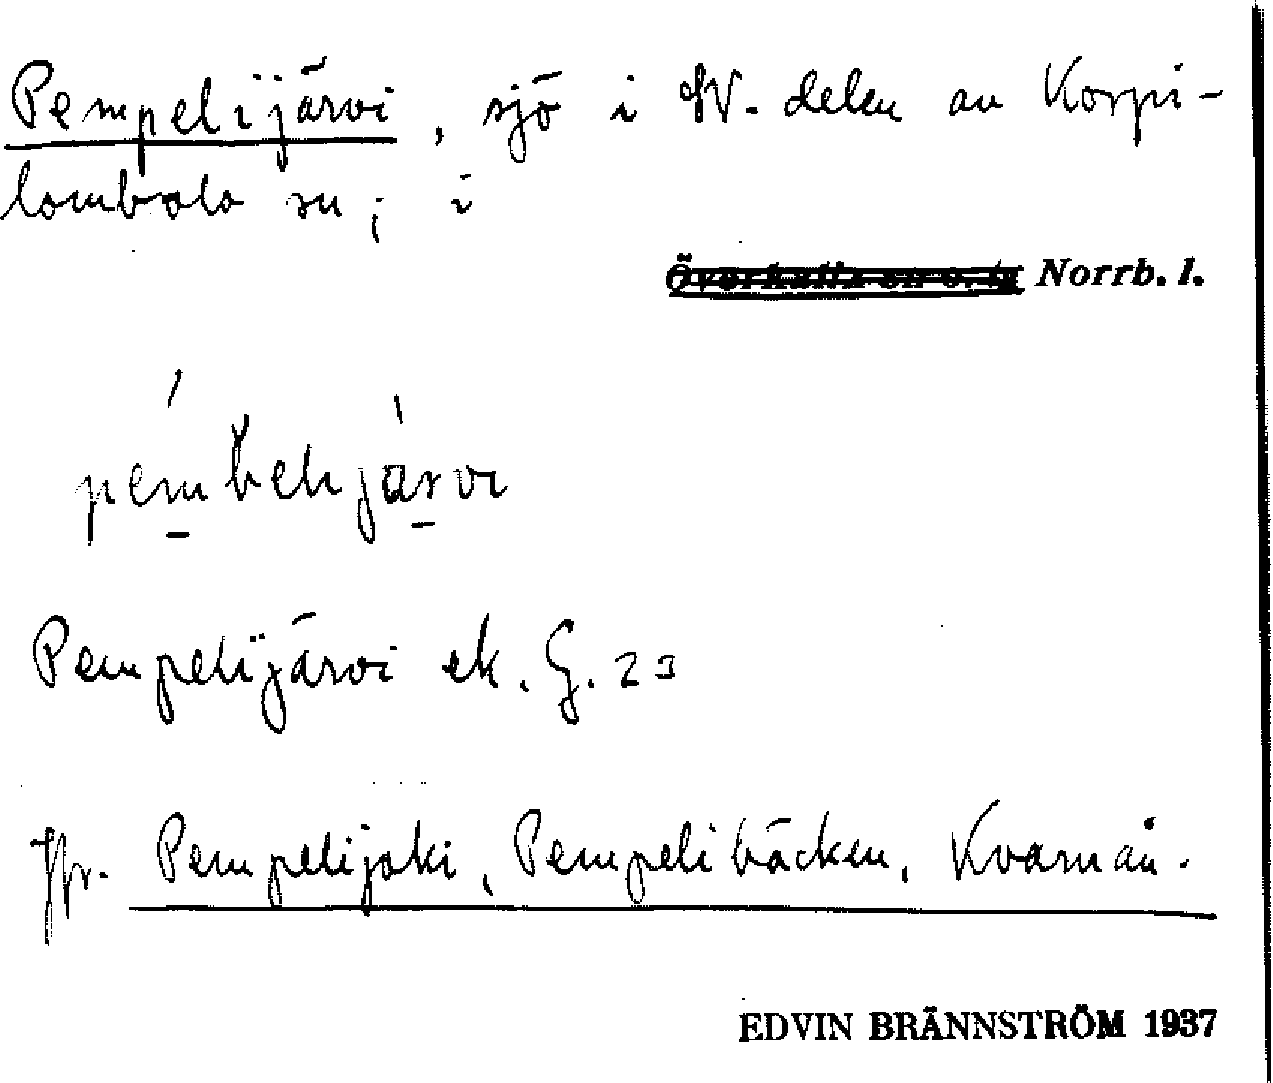 Pempelijärvi, sjö i SV-delen av Korpi-
lombolo sn; i
Överkalix sn o. tg Norrb. l.
pémbelijàrvi
Pempelijärvi ek. G. 23
Jfr. Pempelijoki, Pempelibäcken, Kvarnån.
EDVIN BRÄNNSTRÖM 1937